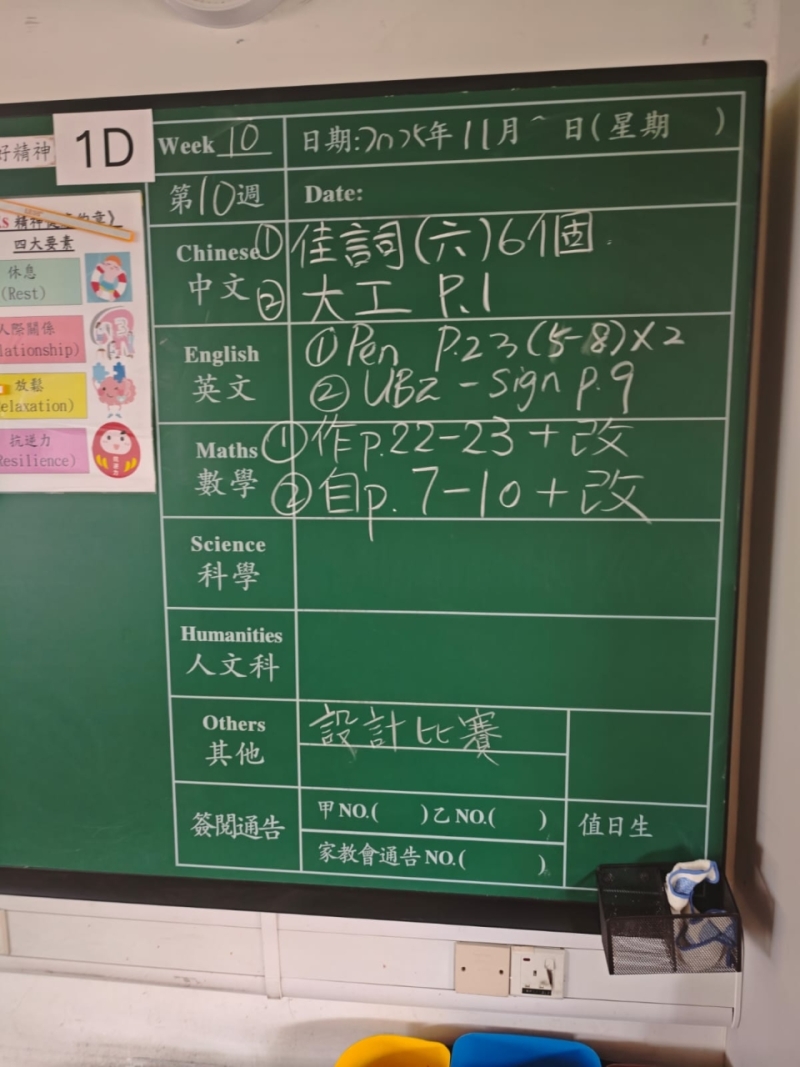 好精神
1D
Week 10
日期:2025年11月 日(星期 )
第10週
Date:
Chinese
中文
① 佳詞(六)6個.
② 大工 P.1
English
英文
① Pen P.23(5-8)×2
② UB2 - Sign p.9
Maths
數學
① 作p.22-23+改
② 自p.7-10+改
Science
科學
Humanities
人文科
Others
其他
設計比賽
簽閱通告
甲NO.( )乙NO.( )
家教會通告NO.( )
值日生
精神
四大要素
休息
(Rest)
人際關係
lationship)
放鬆
elaxation)
抗逆力
Resilience)